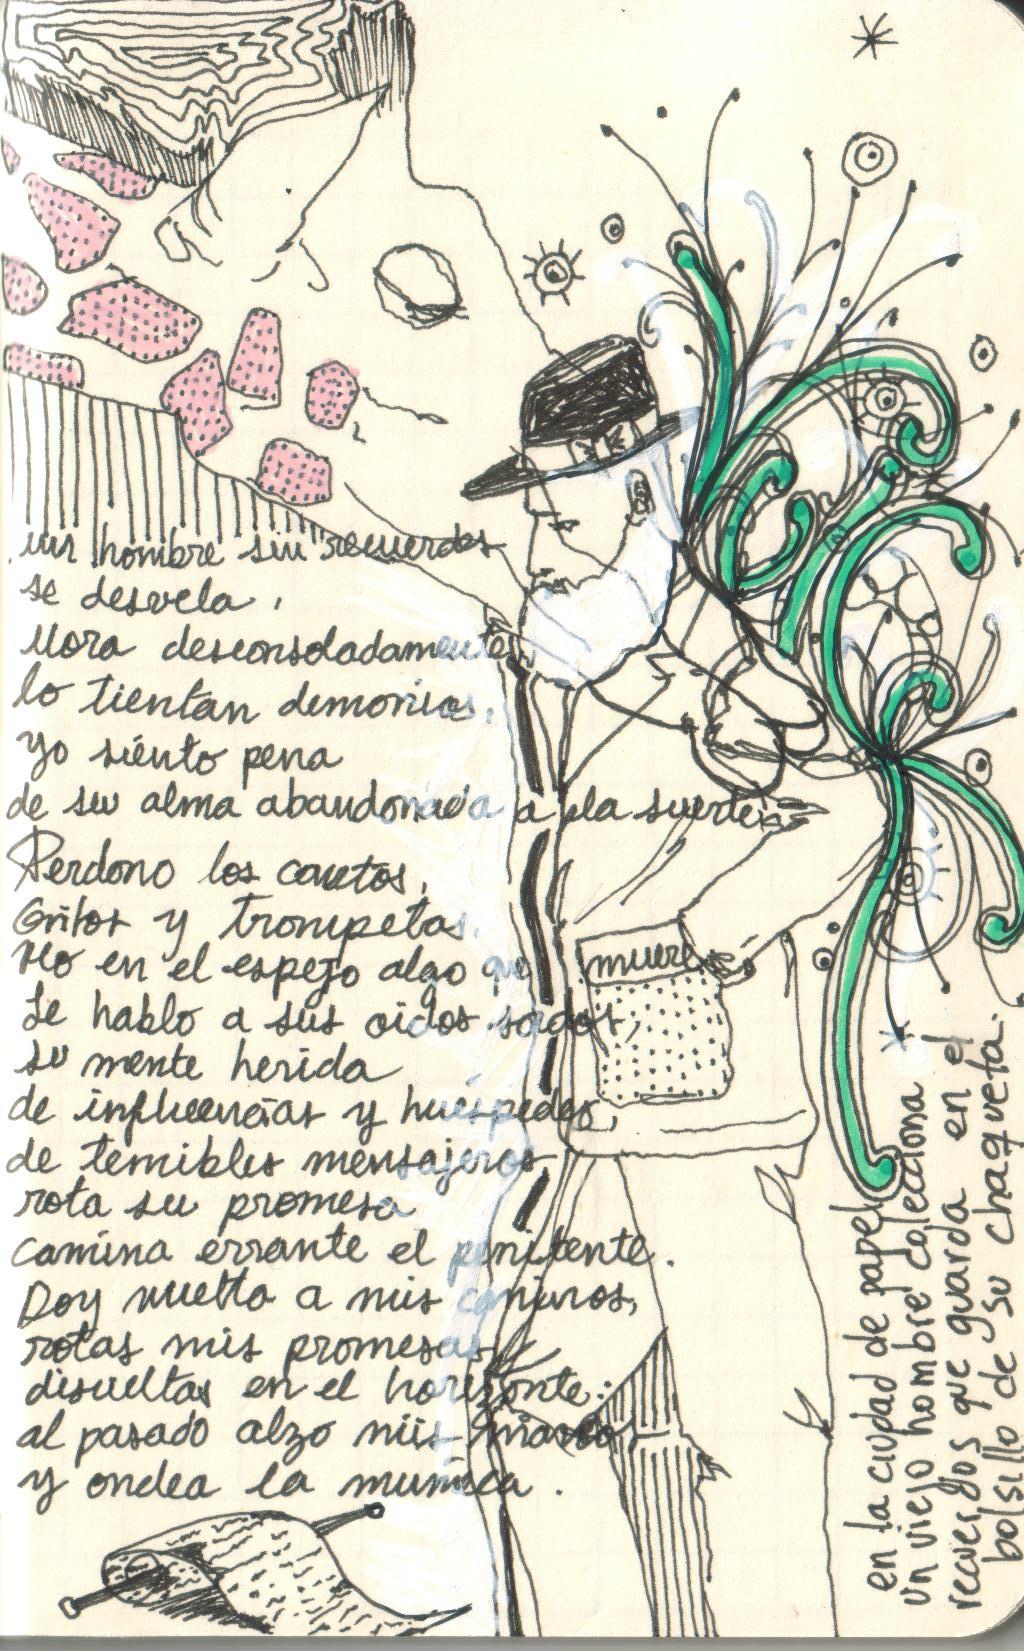 un hombre sin recuerdos
se desvela,
llora desconsoladamente
lo tientan demonios,
yo siento pena
de su alma abandonada a la suerte.
Perdono los cantos,
Gritos y trompetas.
Ho en el espejo algo que
Le hablo a sus oidos sordos,
su mente herida
de influencias y huespedes,
de temibles mensajeros
rota su promesa
camina errante el penitente.
Doy vuelta a mis conjuros,
rotas mis promesas
disueltas en el horizonte:
al pasado alzo mis manos
y ondea la muñeca.
muere
en la ciudad de papel
un viejo hombre colecciona
recuerdos que guarda en el
bolsillo de su chaqueta.